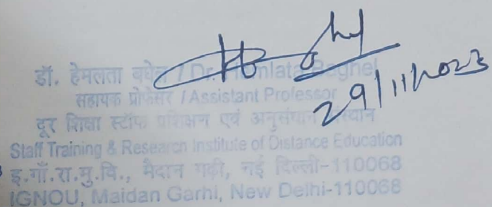 डॉ. हेमलता बघेल / Dr. Hemlata Baghel
सहायक प्रोफेसर / Assistant Professor
29/11/2023
दूर शिक्षा स्टॉफ प्रशिक्षण एवं अनुसंधान संस्थान
Staff Training & Research Institute of Distance Education
इ.गाँ.रा.मु.वि., मैदान गढ़ी, नई दिल्ली-110068
IGNOU, Maidan Garhi, New Delhi-110068